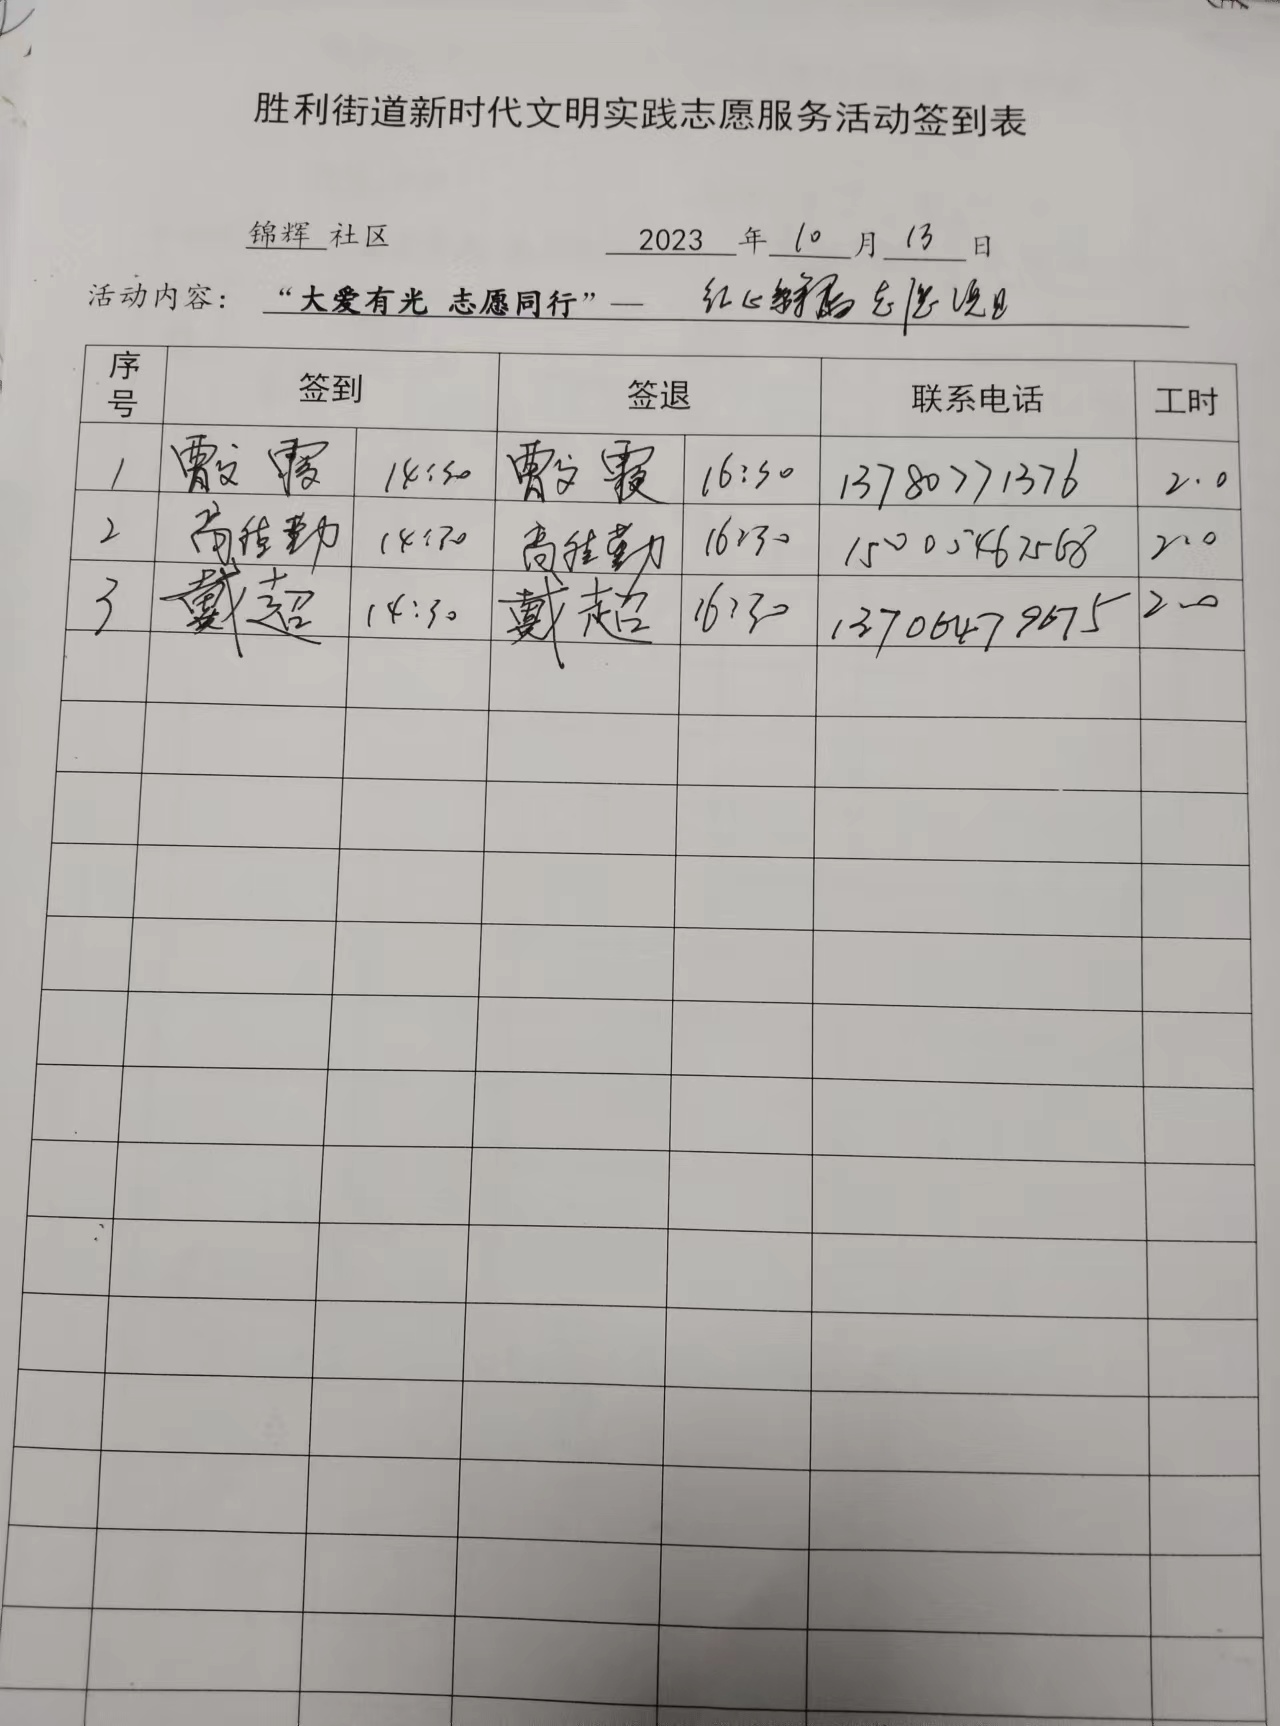 胜利街道新时代文明实践志愿服务活动签到表
锦辉 社区 2023 年 10 月 13 日
活动内容： “大爱有光 志愿同行”— 志愿项目
序号 签到 签退 联系电话 工时
1 贾文霞 14:30 贾文霞 16:30 13780771376 2.0
2 高佳勤 14:30 高佳勤 16:30 15005467568 2.0
3 戴超 14:30 戴超 16:30 13706479675 2.0